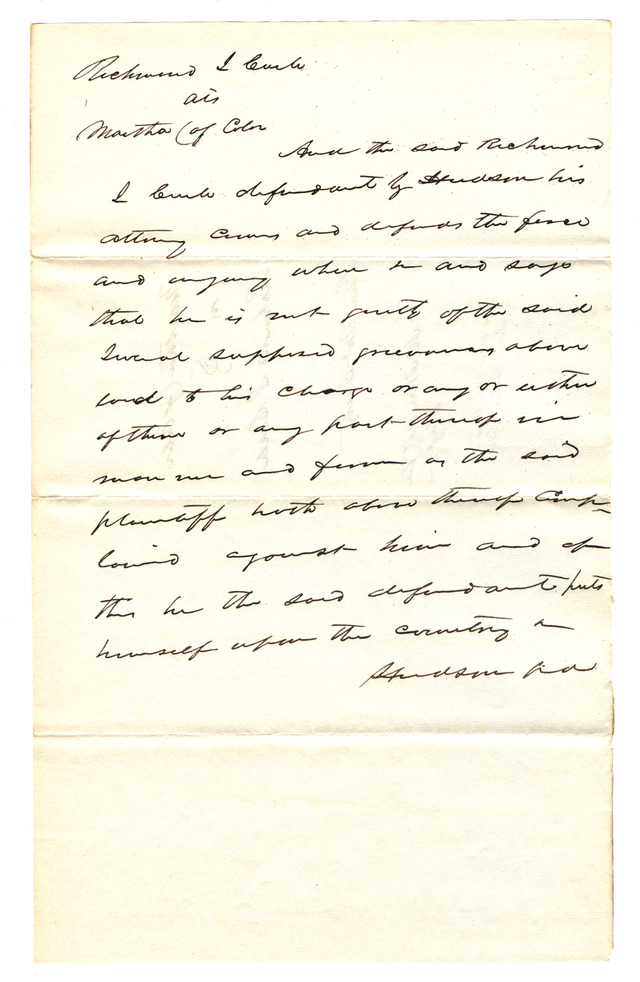 Richmond I Curle
ats
Martha (of Color
And the said Richmond
I Curle defendant by Hudson his
attorney comes and defends the force
and injury when &c and says
that he is not guilty of the said
several supposed grievances above
laid to his charge or any or either
of them or any part thereof in
manner and form as the said
plaintiff hath above thereof comp-
lained against him and of
this he the said defendant puts
himself upon the country &c
Hudson